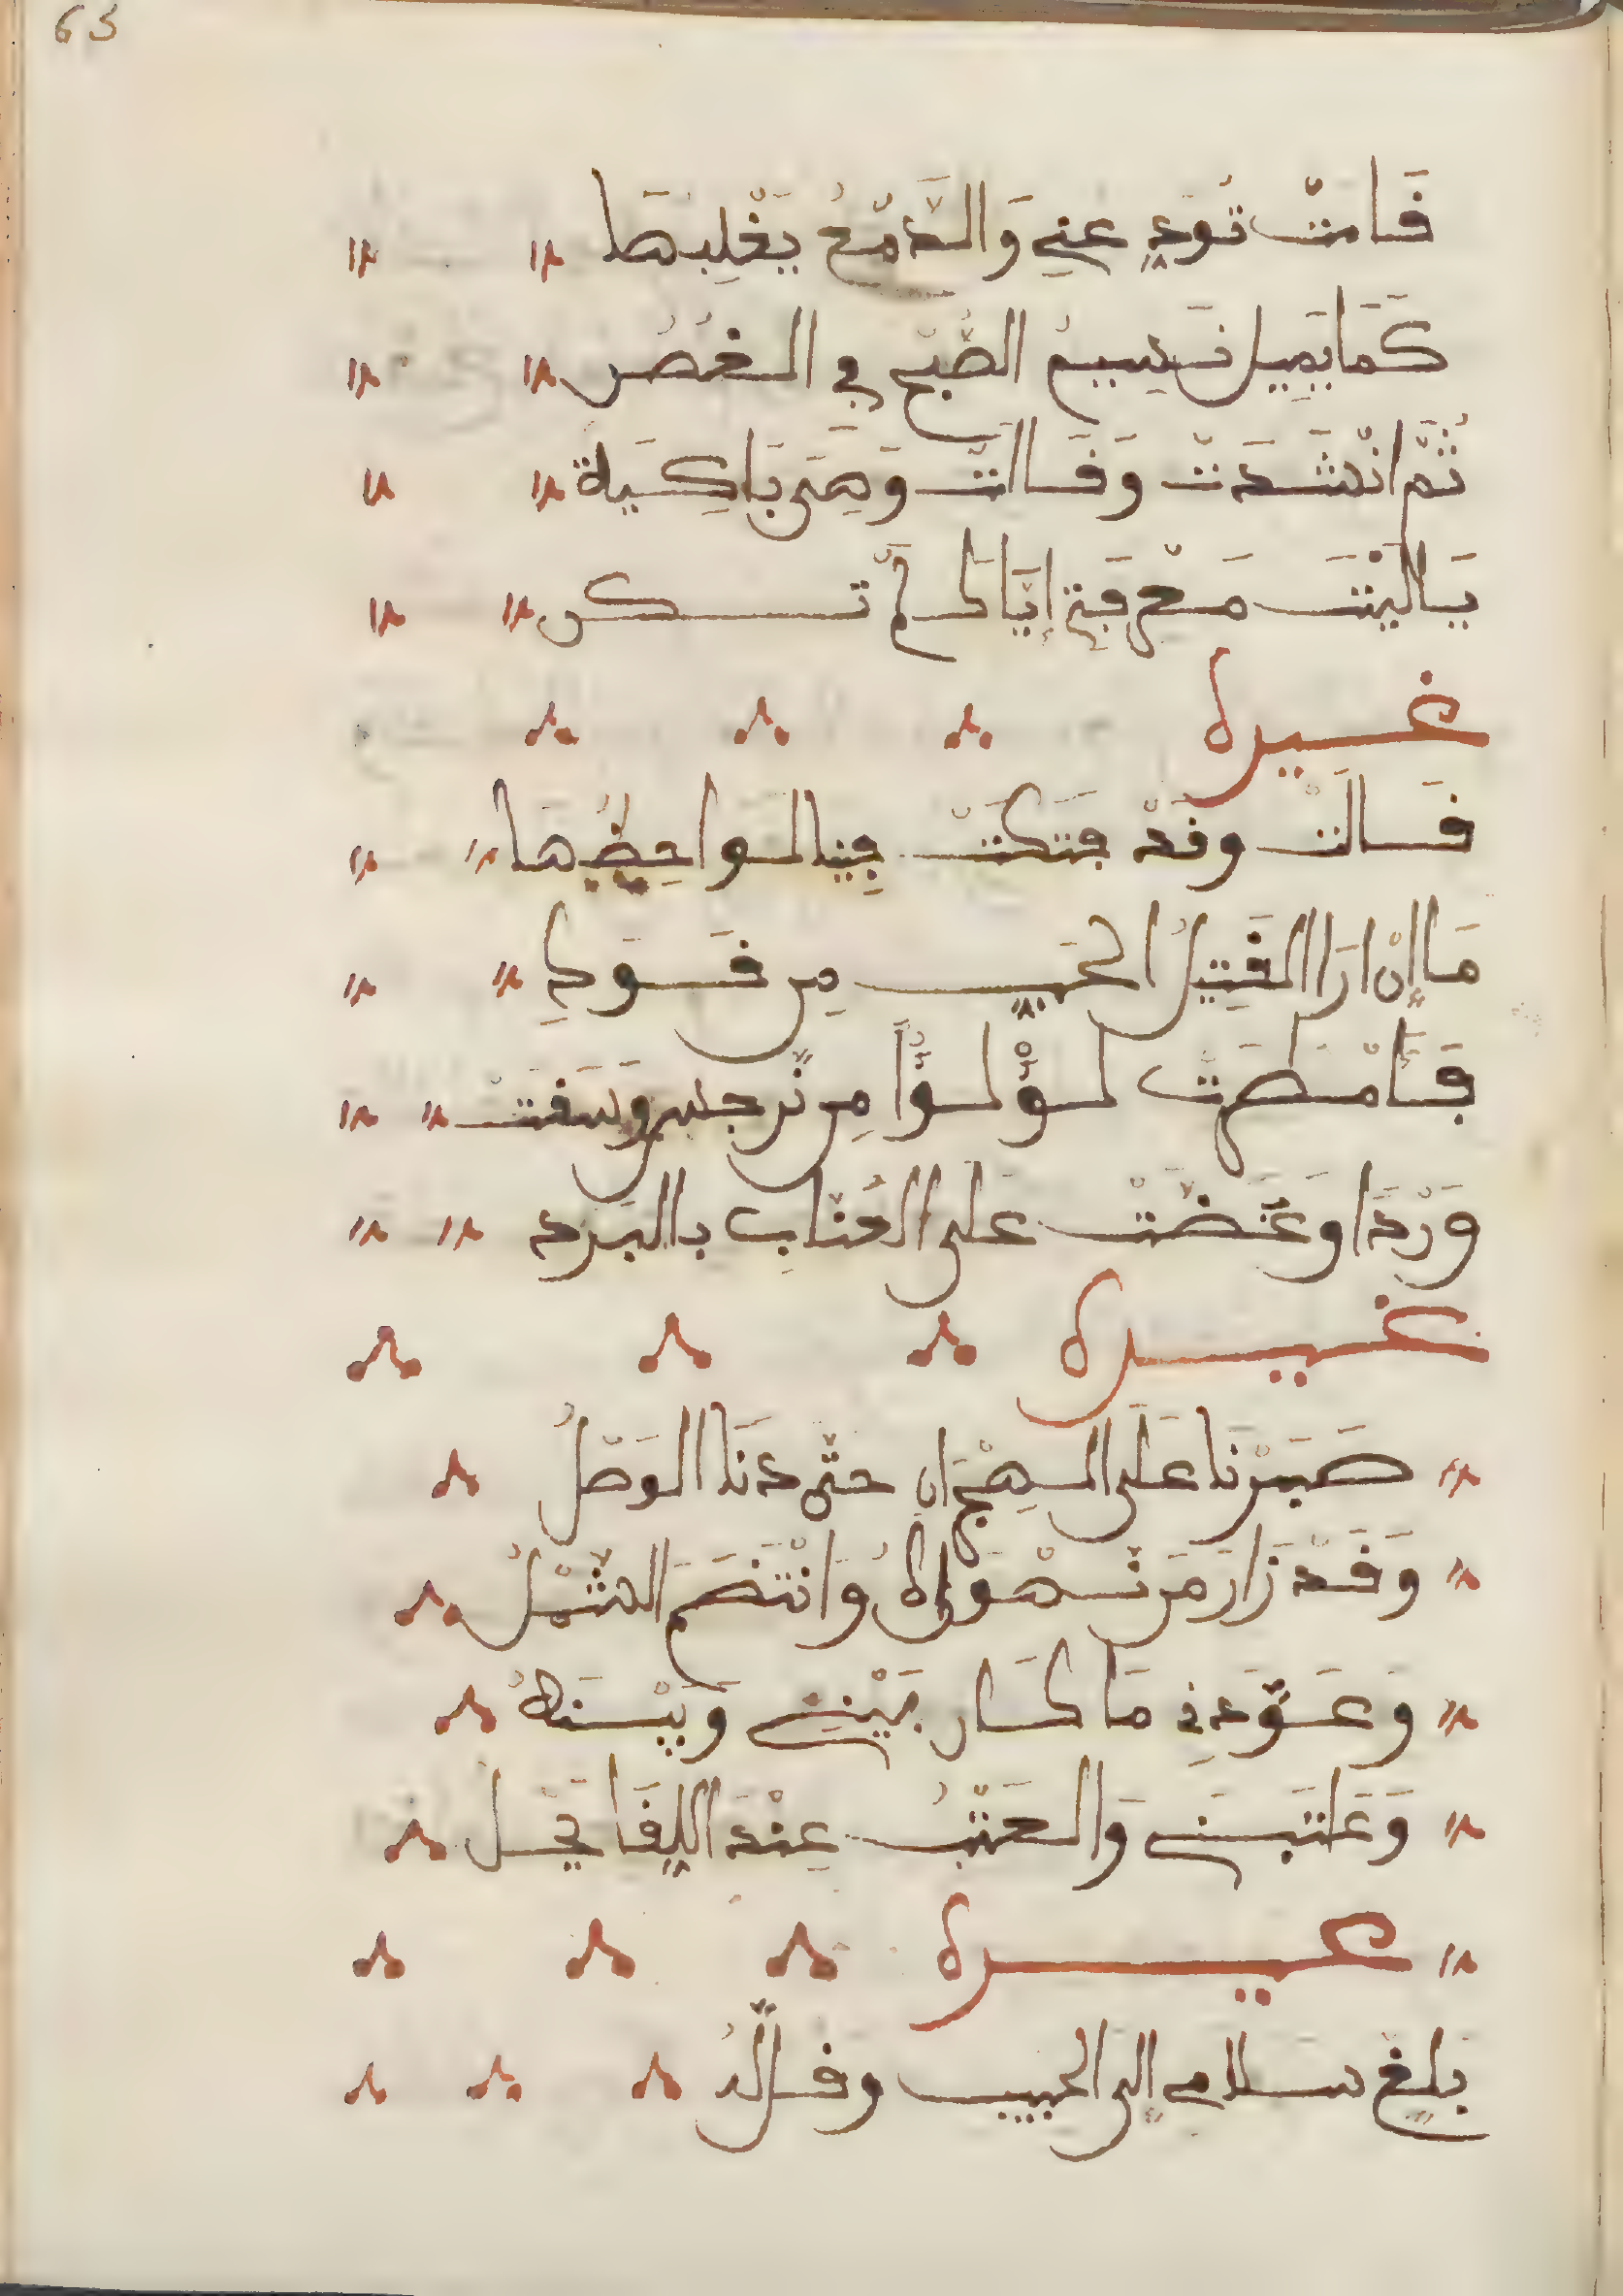 63
قَامتْ تُودِّعني وَالدَّمْعُ يَغْلِبُهَا
كَمَا يَمِيل نَسِيمُ الصُّبْحِ في الغُصُن
ثُمَّ انْشَدَتْ وَقَالتْ وَهِىَ بَاكِيَة
يَالَيْتَ مَعْرِفَتِي إيَّاكَ لَمْ تَكن
غيره
قَالَتْ وقَدْ فَتَكَتْ فِينا لَواحِظُهَا
مَا إنْ ارَا القَتِيلُ الحُبِّ مِن قَوَدِ
فَأَمْطَرَتْ لُؤْلُؤًا مِن نَّرجس وَسَقتْ
وَرْدًا وعَضَّتْ عَلَى العُنَّابِ بالبَرَد
غيره
صَبَرْنَا عَلَى الهِجْرَانِ حتّى دنَا الوَصْلُ
وَقَدْ زَارَ مَن نّهْوَاهُ وَانْتَضَمَ الشَّمْلُ
وَعَوَّدني مَا كَان بَيْنِي وَبَيْنَهُ
وَعَاتَبَني وَالعَتْبُ عِنْدَ اللِّقَا يَحْل
غيره
بَلِّغ سَلامي إلى الحبيب وقل لَّهُ